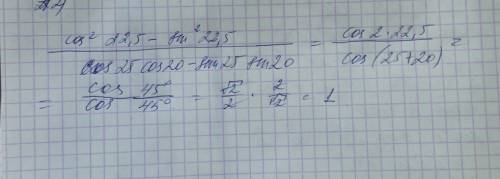 cos² 22,5 - sin² 22,5 / cos 25 cos 20 - sin 25 sin 20 = cos 2·22,5 / cos (25+20) =
= cos 45° / cos 45° = √2/2 · 2/√2 = 1